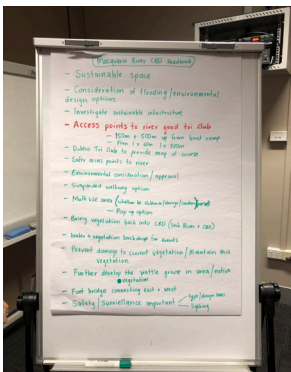 Macquarie River CBD Feedback
- Sustainable space
- Consideration of flooding/environmental
design options
- Investigate sustainable infrastructure
- Access points to river good tri Club
- 750m + 500m up from boat ramp
Dubbo Tri Club to provide map of course
- Safer access points to river
- Environmental consideration/approval
- Suspended walkway option
- Multi use area
- Pop up option
- Bring vegetation back into CBD (link River + CBD)
- Water + vegetation backdrop for events
- Prevent damage to current vegetation/maintain this
vegetation
- Further develop the wattle grove in area/native
vegetation
- Foot bridge connecting east + west
- Safety/Surveillance important
lighting